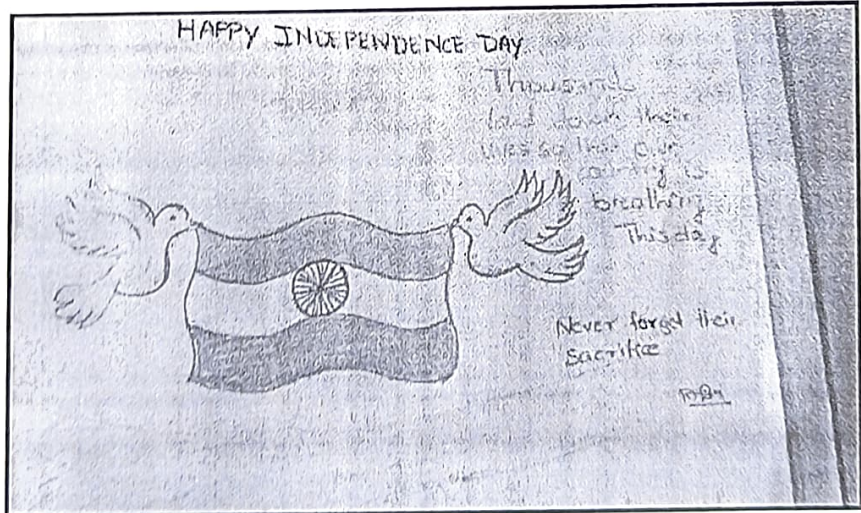 HAPPY INDEPENDENCE DAY
Thousands
laid down their
lives so that our
country is
breathing
This day
Never forget their
Sacrifice